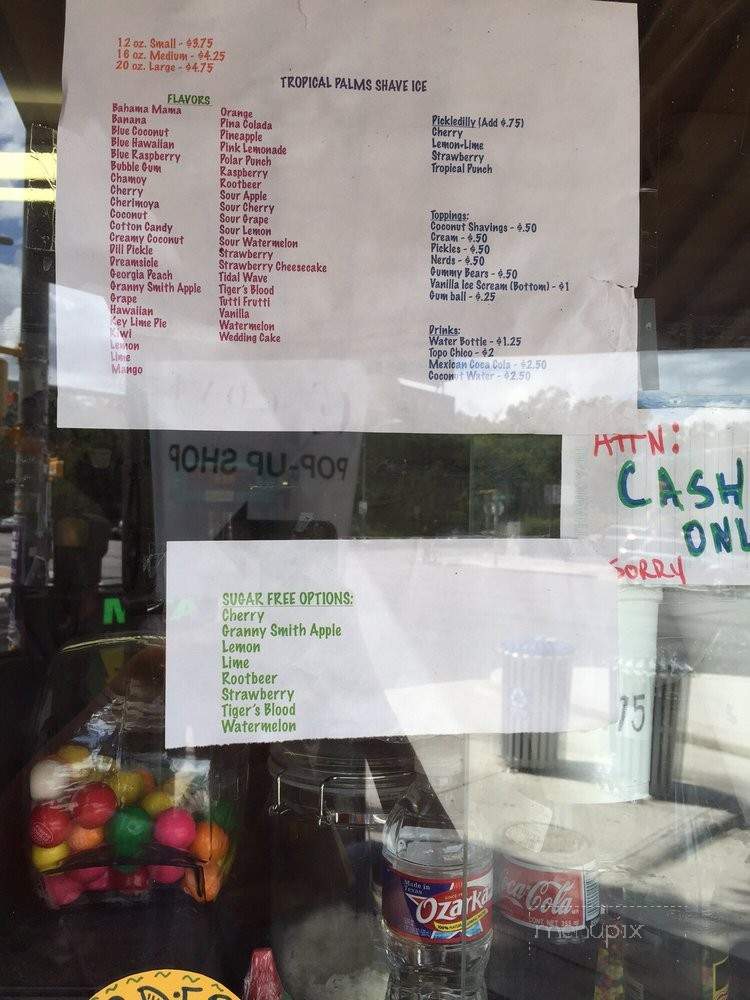 12 oz. Small - $3.75
16 oz. Medium - $4.25
20 oz. Large - $4.75
TROPICAL PALMS SHAVE ICE
FLAVORS
Bahama Mama
Banana
Blue Coconut
Blue Hawaiian
Blue Raspberry
Bubble Gum
Chamoy
Cherry
Cherimoya
Coconut
Cotton Candy
Creamy Coconut
Dill Pickle
Dreamsicle
Georgia Peach
Granny Smith Apple
Grape
Hawaiian
Key Lime Pie
Kiwi
Lemon
Lime
Mango
Orange
Pina Colada
Pineapple
Pink Lemonade
Polar Punch
Raspberry
Rootbeer
Sour Apple
Sour Cherry
Sour Grape
Sour Lemon
Sour Watermelon
Strawberry
Strawberry Cheesecake
Tidal Wave
Tiger's Blood
Tutti Frutti
Vanilla
Watermelon
Wedding Cake
Pickledilly (Add $.75)
Cherry
Lemon-Lime
Strawberry
Tropical Punch
Toppings:
Coconut Shavings - $.50
Cream - $.50
Pickles - $.50
Nerds - $.50
Gummy Bears - $.50
Vanilla Ice Scream (Bottom) - $1
Gum ball - $.25
Drinks:
Water Bottle - $1.25
Topo Chico - $2
Mexican Coca Cola - $2.50
Coconut Water - $2.50
POP-UP SHOP
ATTN:
CASH
ONL
SORRY
SUGAR FREE OPTIONS:
Cherry
Granny Smith Apple
Lemon
Lime
Rootbeer
Strawberry
Tiger's Blood
Watermelon
15
Made in
Texas
Ozarka
Coca-Cola
menupix